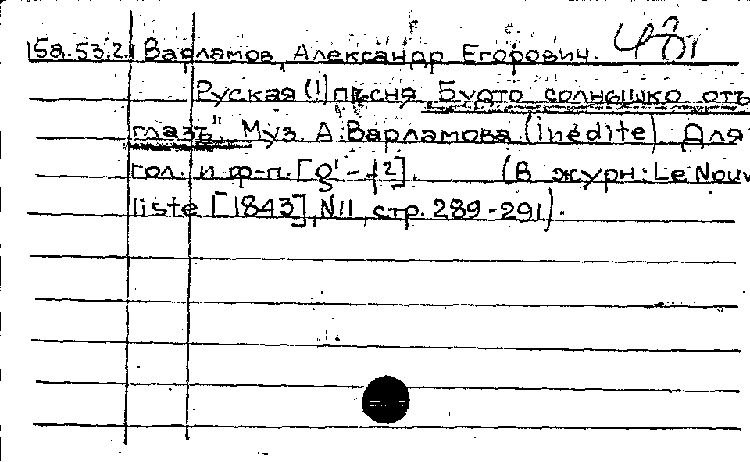 15а.53.2. Варламов, Александр Егорович.
Руская (!) пѣсня Будто солнышко отъ
глазъ". Муз. А. Варламова (inédite). Для
гол. и ф-п. [g'-f²]. (В журн: Le Nouv
liste [1843], N11, стр. 289-291).